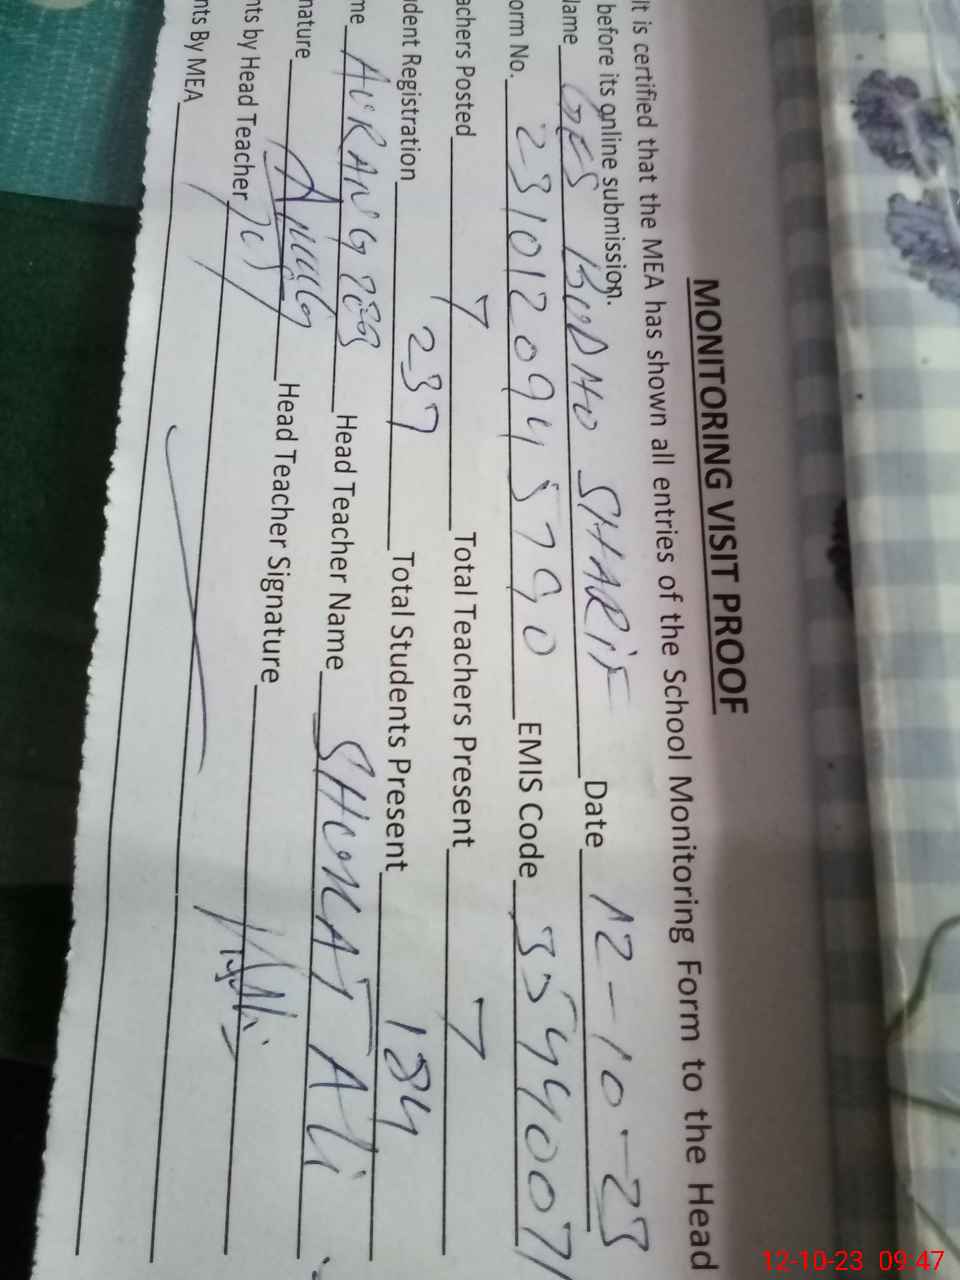 MONITORING VISIT PROOF
it is certified that the MEA has shown all entries of the School Monitoring Form to the Head
before its online submission.
Name GES BUDHO SHARIF Date 12-10-23
orm No. 231012094 5790 EMIS Code 35440071
achers Posted 7 Total Teachers Present 7
dent Registration 237 Total Students Present 184
me AURANGZEB Head Teacher Name SHUJAT Ali
nature Head Teacher Signature
nts by Head Teacher
nts By MEA
12-10-23 09:47